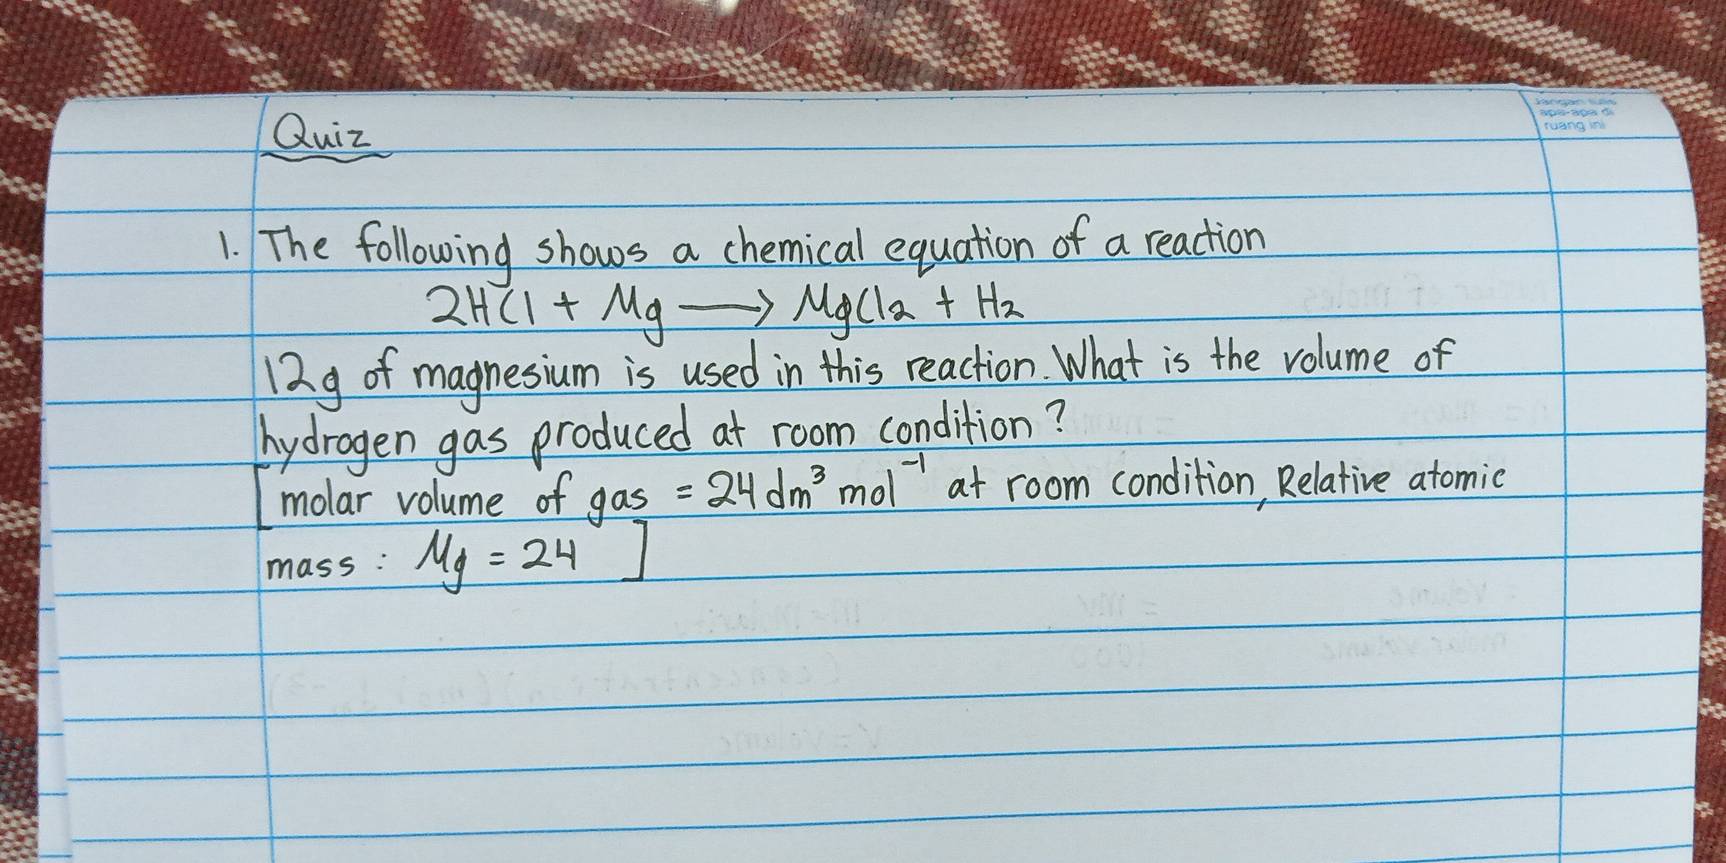 Jangan tulis
apa-apa di
ruang ini
Quiz
1. The following shows a chemical equation of a reaction
2HCl + Mg → MgCl2 + H2
12g of magnesium is used in this reaction. What is the volume of
hydrogen gas produced at room condition?
[molar volume of gas = 24 dm³ mol⁻¹ at room condition, Relative atomic
mass : Mg = 24 ]